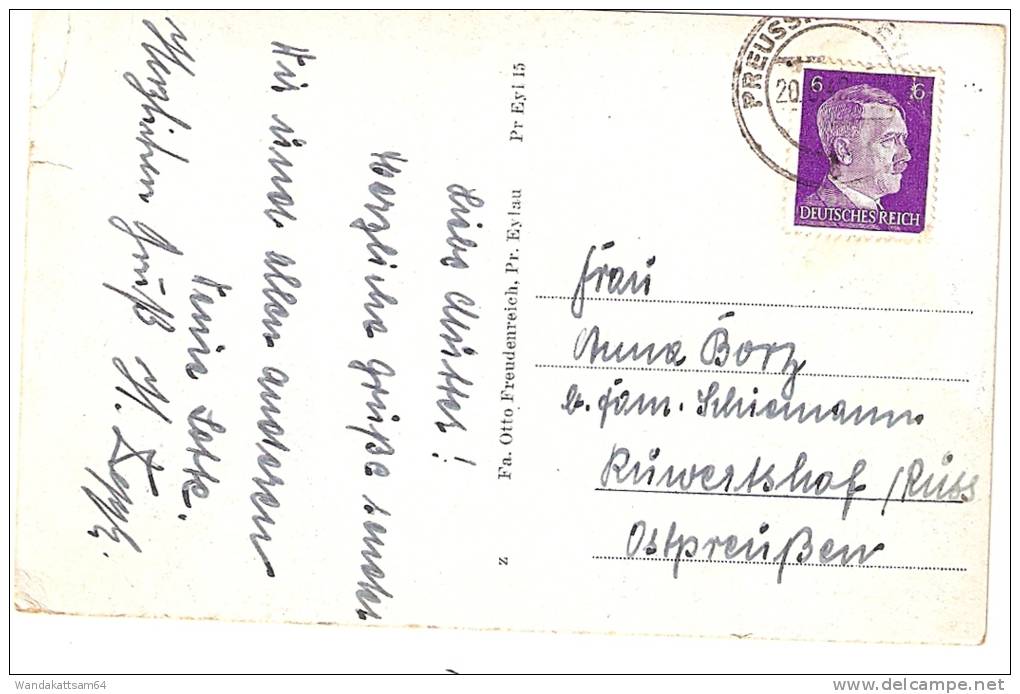 Liebe Mutter!
Herzliche Grüße sendet
Dir und allen anderen
Deine Lotte.
Herzlichen Gruß H.
Fa. Otto Freudenreich, Pr. Eylau Pr Eyl 15
z
PREUSSI
20.
6 6
DEUTSCHES REICH
Frau
Anna Borz
b. Fam. Schiemann
Ruwertshof /Russ
Ostpreußen
Wandakattsam64
www.delcampe.net